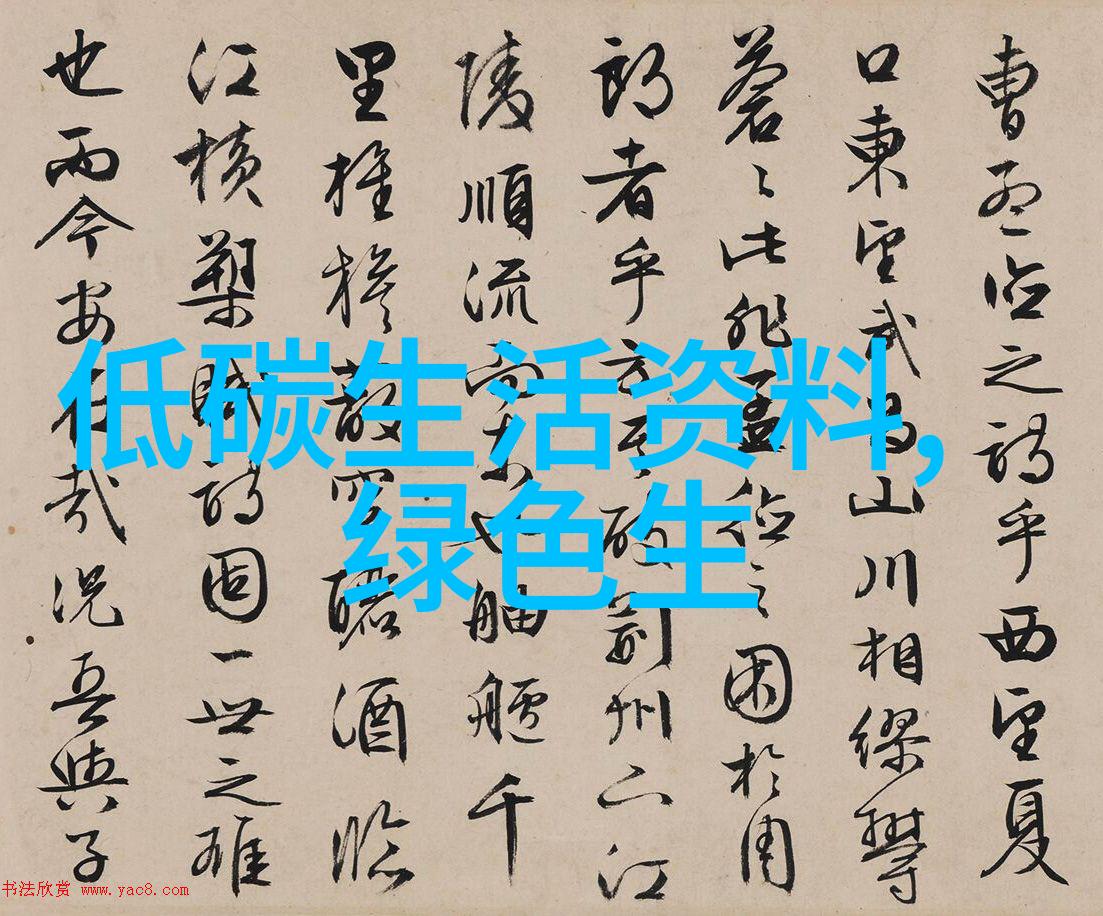 曹孟德之詩乎西望夏
口東望武昌山川相繆鬱
蒼〻此非孟德之困於周
郎者乎方其破荊州下江
陵順流而東也舳艫千
里旌旗蔽空釃酒臨
江橫槊賦詩固一世之雄
也而今安在哉況吾與子
低碳生活资料,
绿色生
书法欣赏 www.yac8.com